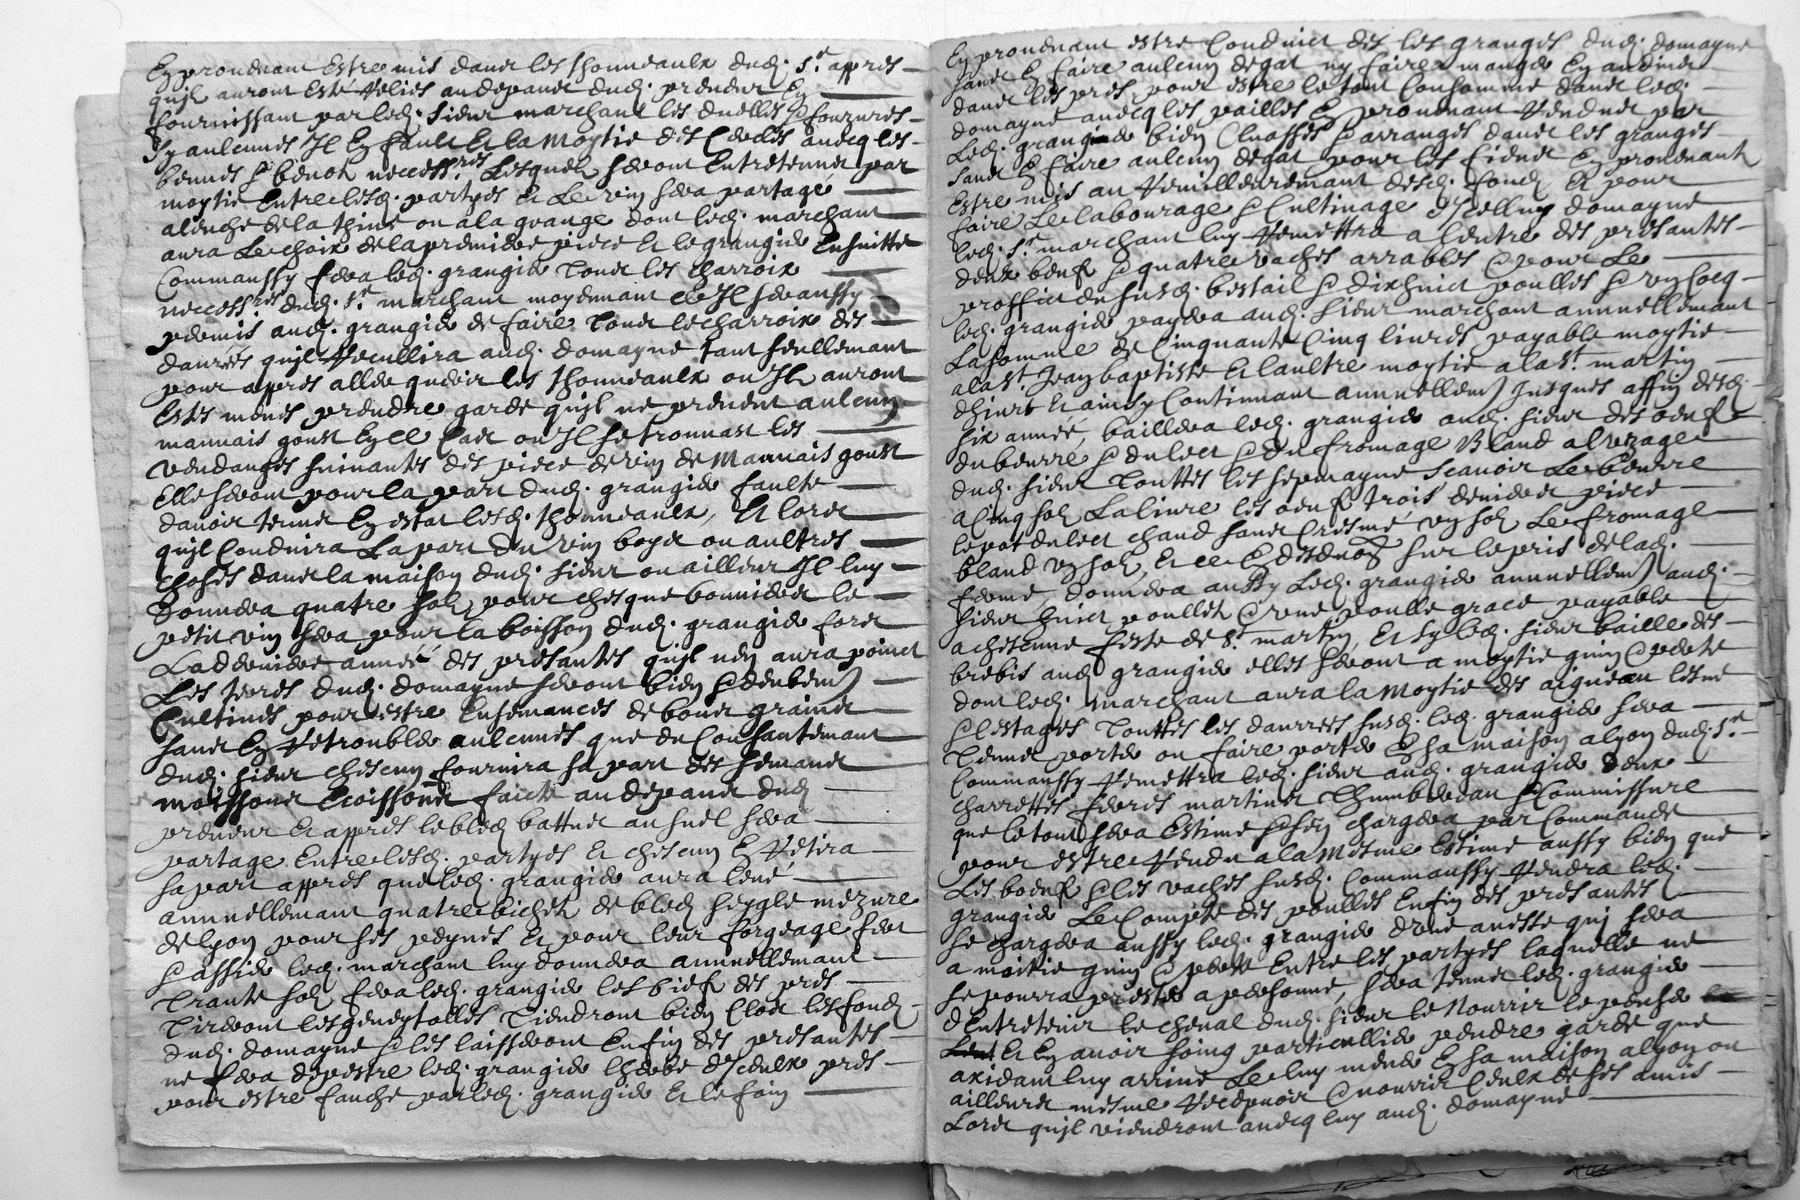 En provenant estre mis dans les thonneaulx dud. Sr. appres
quil auront esté reliés au depans dud. preneur En
fournissant par led. sieur marchant les duelles & fozures
sy aulcunes Il En fault Et la moytie des Cercles avecq les
bennes & benot neccessres. Lesquels seront Entretenus par
moytie Entre lesd. partyes Et Le vin sera partagé
alanche de la thine ou a la grange dont led. marchant
aura Le choix de la premiere piece Et le grangier Ensuitte
Commaussy fera led. grangier Tous les charroix
neccessres. dud. Sr. marchant moyennant ce Il sera aussy
permis aud. grangier de faire Tous le charroix des
danrés quil Recullira aud. domayne tant seullemant
pour appres aller querir les thonneaulx ou Il auront
Estes menés prendre garde quil ne prenent aulcung
mauvais goust En ce Cas ou Il se trouvast les
vendanges suivantes des piece de vin de Mauvais goust
Elle seront pour la part dud. grangier faulte
davoir tenue En estat lesd. thonneaulx, Et lors
quil Conduira La part du vin boys ou aultres
choses dans la maison dud. sieur ou ailleur Il luy
Donnera quatre solz pour chesque bonniere le
petit vin sera pour la boisson dud. grangier fors
La derniere année des presantes quil nen aura poinct
Les terres dud. domayne seront bien & deubemt
Cultives pour estre Ensemances de bons grains
sans En Retroubler aulcunes que du Consantemant
dud. sieur chescun fournira sa part des semance
moissons Croissons faicte au depans dud
preneur Et appres le bled battus au suel sera
partage Entre lesd. partyes Et chescun En Retira
sa part appres que led. grangier aura levé
annuellemant quatre bichetz de bled seygle mezure
de lyon pour ses peynes Et pour leur forgeage fert
& assier led. marchant luy donnera annuellemant
Trante solz fera led. grangier les bief des pres
Tireront les geneytolles Tiendront bien Clos les fonds
dud. domayne & les laisseront En fin des presantes
ne fera depestre led. grangier lherbe d'Iceulx pres
pour estre fauché par led. grangier Et le foin
En provenant estre Conduict des les granges dud. domayne
sans En faire aulcung degat ny faire manger En
dans les pres pour estre le tout Consommé dans led.
domayne avecq les pailles En provenant Rendues par
Led. grangier bien & arranges dans les granges
sans En faire aulcung degat pour les fiens En provenant
Estre mis au Remilleuremant desd. fonds Et pour
faire Le labourage & Cultivage d'Icelluy domayne
led. Sr. marchant luy Remettra a lentre des presantes
deux beufz & quatre vaches arrables & pour Le
proffict du susd. bestail & dixhuict poulles & ung Cocq
led. grangier payera aud. sieur marchant annuellemant
La somme de Cinquante Cinq livres payable moytie
a la St. Jean baptiste Et laultre moytie a la St. martin
dhiver Et ainsy Continuant annuellemt Jusques affin desd.
six année, baillera led. grangier aud. sieur des oeufz
du beurre & du lect & du fromage Bland a l'uzage
dud. sieur Touttes les sepmayne scavoir Le beurre
a Cinq solz La livre les oeufz trois denier piece
le pot du lect chaud sans Cresmé ung solz Le fromage
bland ung solz, Et ce En desduon sur le pris de lad.
ferme donnera aussy led. grangier annuellemt aud.
sieur huict poullet & une poulle grace payable
a chescune feste de St. martin, Et sy led. sieur baille des
brebis aud. grangier elles seront a moytie guin & perte
dont led. marchant aura la Moytie des aigneau lesne
& lestages Touttes les danrrees susd. led. grangier sera
Tenue porter ou faire porter En sa maison a lyon dud. Sr.
Commaussy Remettra led. sieur aud. grangier deux
charrettes ferres martines Thumbereau & Commissure
que le tout sera Estime & sen chargera par Commande
pour estre Rendu a la Mesme Estime aussy bien que
Les boeufz & les vaches susd. Commaussy Rendra led.
grangier Le Compte des poulles En fin des presantes
se chargera aussy led. grangier d'une anesse qui sera
a moitie guin & perte Entre les partyes laquelle ne
se pourra prester a personne, sera tenue led. grangier
d'Entretenir le cheval dud. sieur le Nourrir le penser
Et En avoir soing particullier prendre garde que
axidant luy arrive Le luy mener En sa maison a lyon ou
ailleurs mesme Recepvoir & nourrir Ceulx de ses amis
Lors quil viendront avecq luy aud. domayne